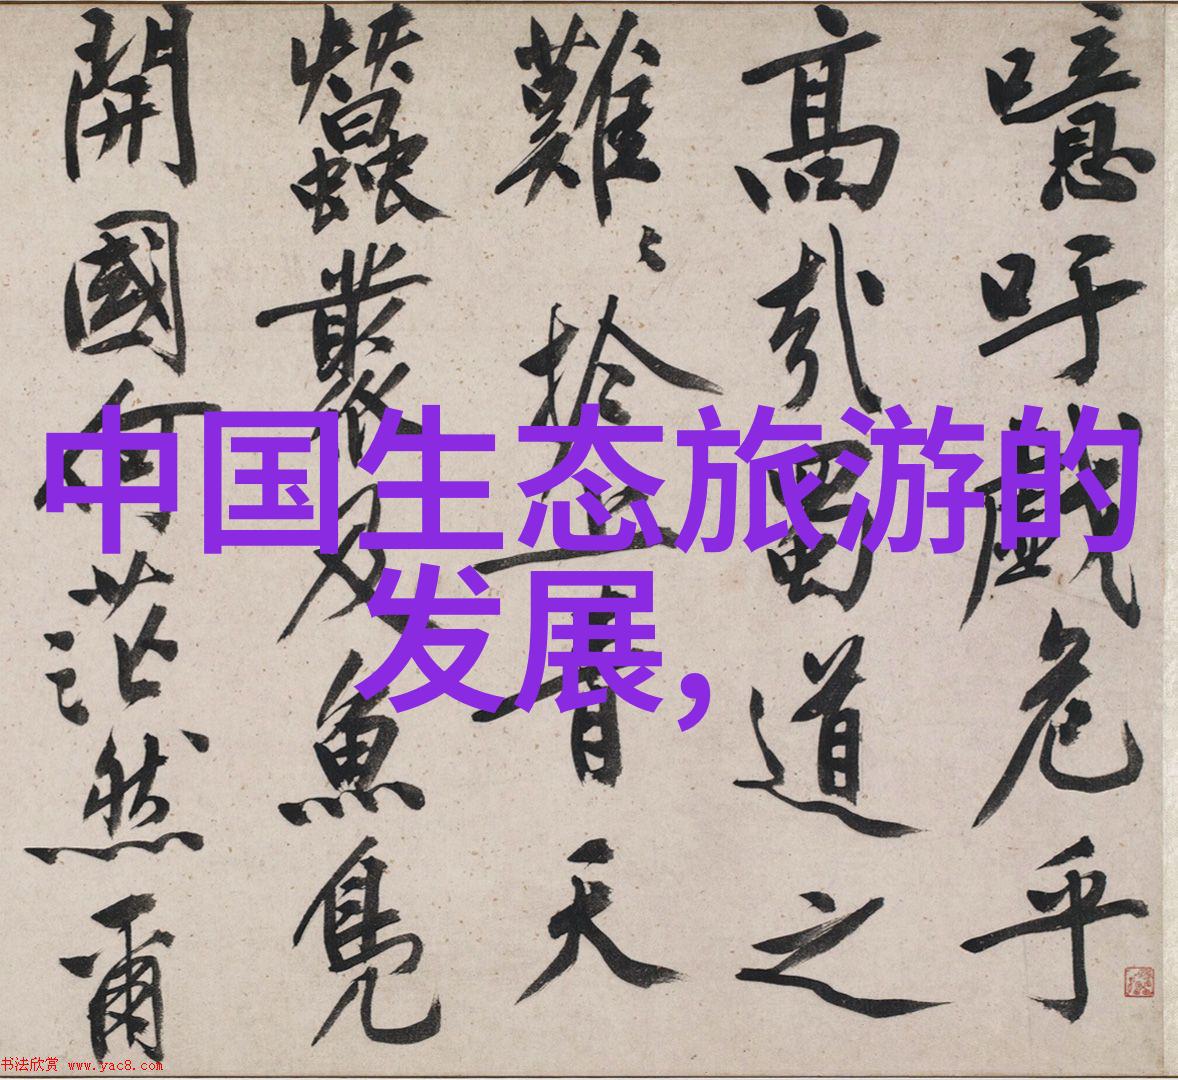 噫吁戱危乎
高哉蜀道之
難〻於上青天
蠶叢及魚鳧
開國何茫然爾
中国生态旅游的
发展,
书法欣赏 www.yac8.com